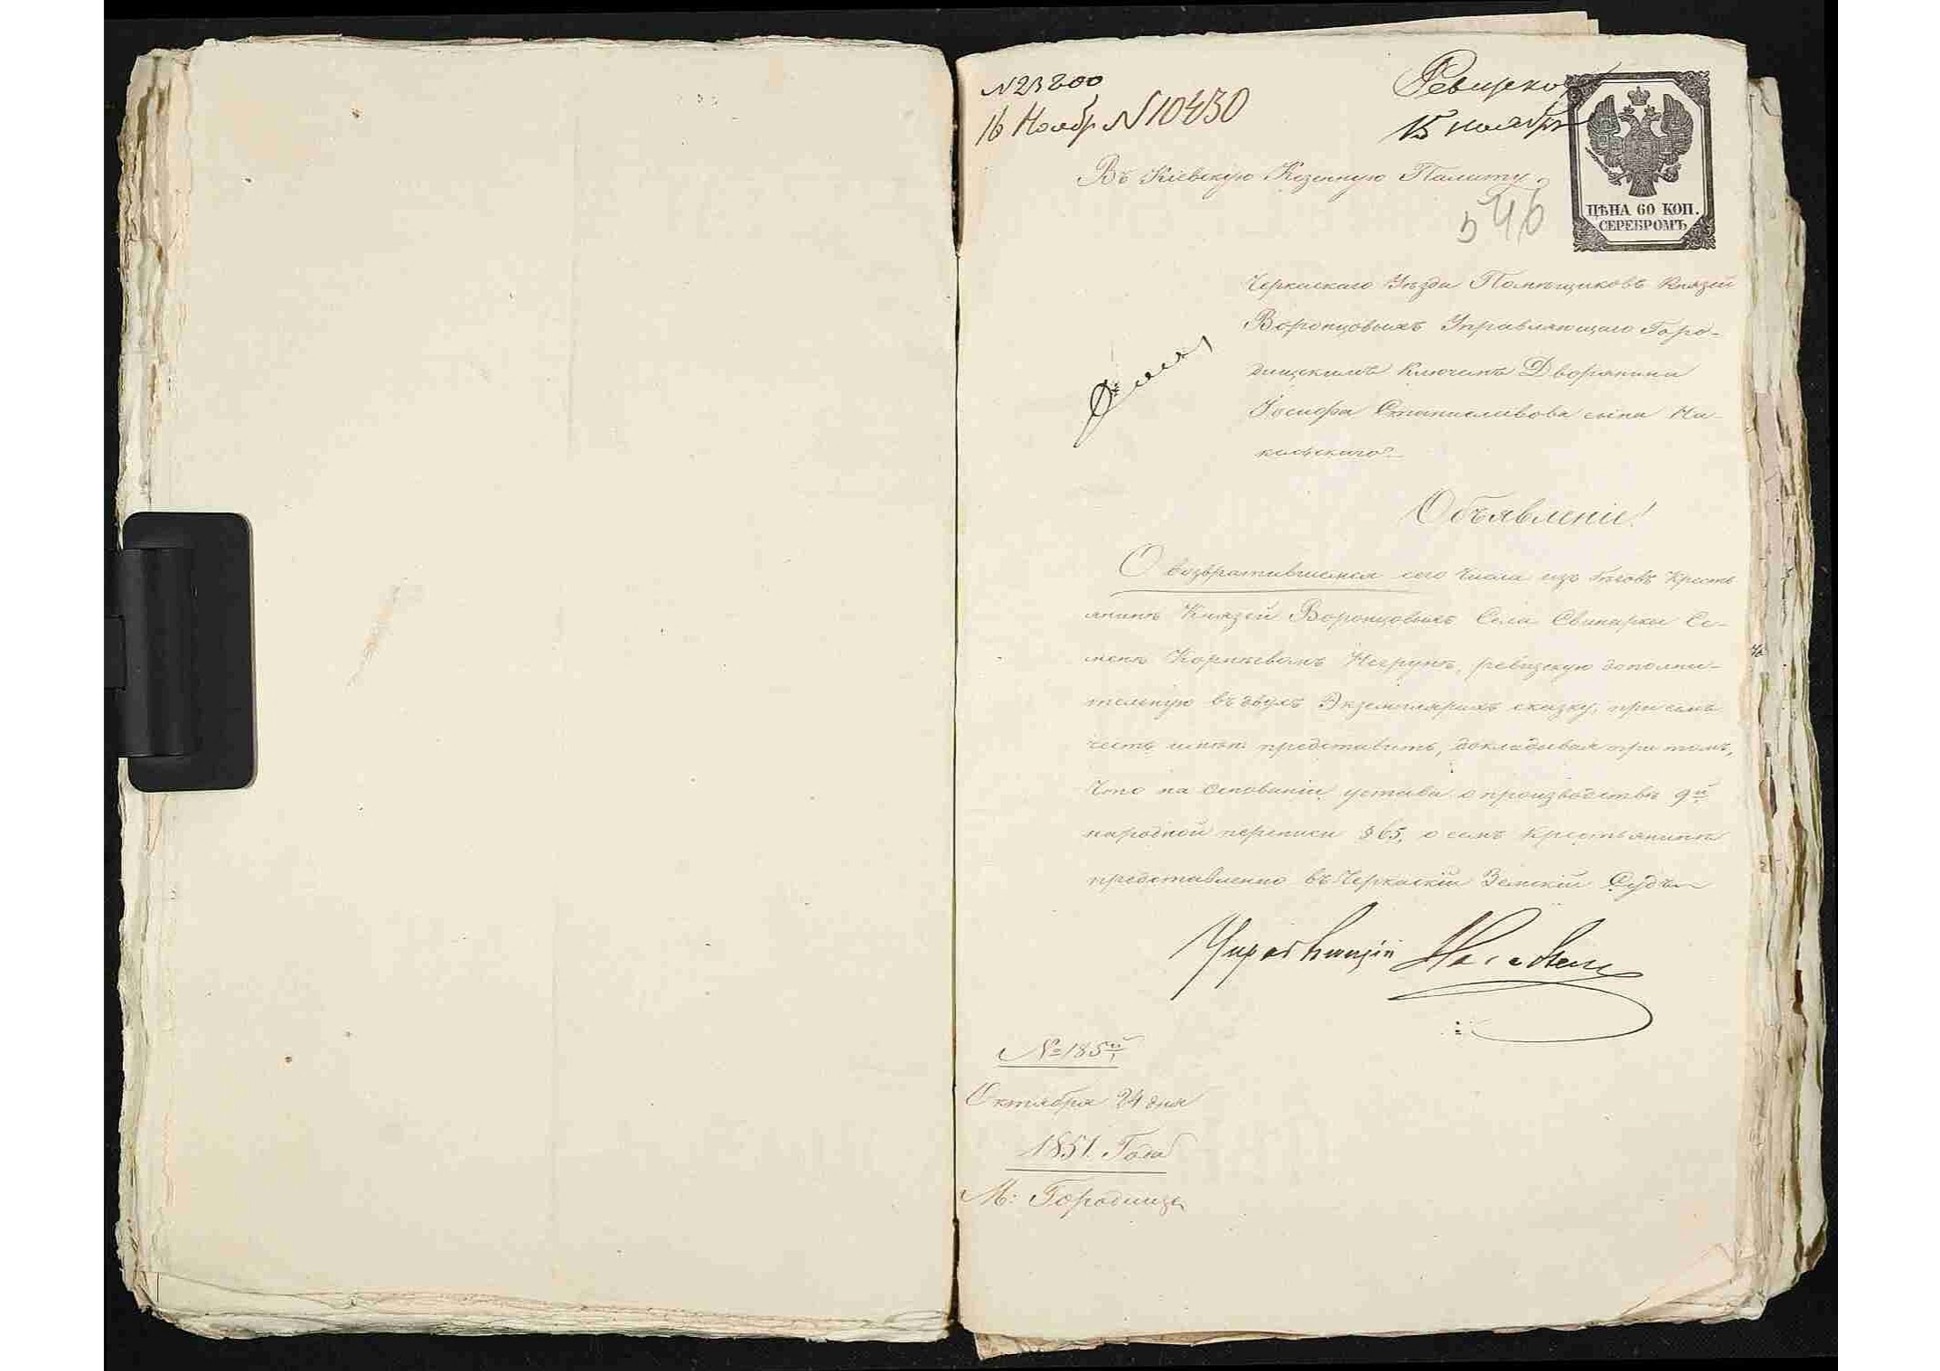 N 23200
16 Ноябр N 10430
15 ноября
Въ Кіевскую Казенную Палату.
546
ЦѢНА 60 КОП.
СЕРЕБРОМЪ
Черкаскаго Уѣзда Помѣщиковъ Князей
Воронцовыхъ Управляющаго Горо-
дищскимъ Ключемъ Дворянина
Іосифа Станиславова сына
Объявленіе!
О возвратившемся сего числа изъ бѣговъ крестья
янинѣ Князей Воронцовыхъ Села Свинарки Се-
менѣ Корнѣевомъ ревизскую дополни-
тельную въ двухъ Экземплярахъ сказку, при семъ
честь имѣю представить, докладывая при томъ,
Что на основаніи устава о производствѣ 9й
народной переписи § 65, о семъ крестьянинѣ
представленно въ Черкаскій Земскій Судъ
Управляющій
№ 185й
Октября 24 дня
1851. Года
М: Городище